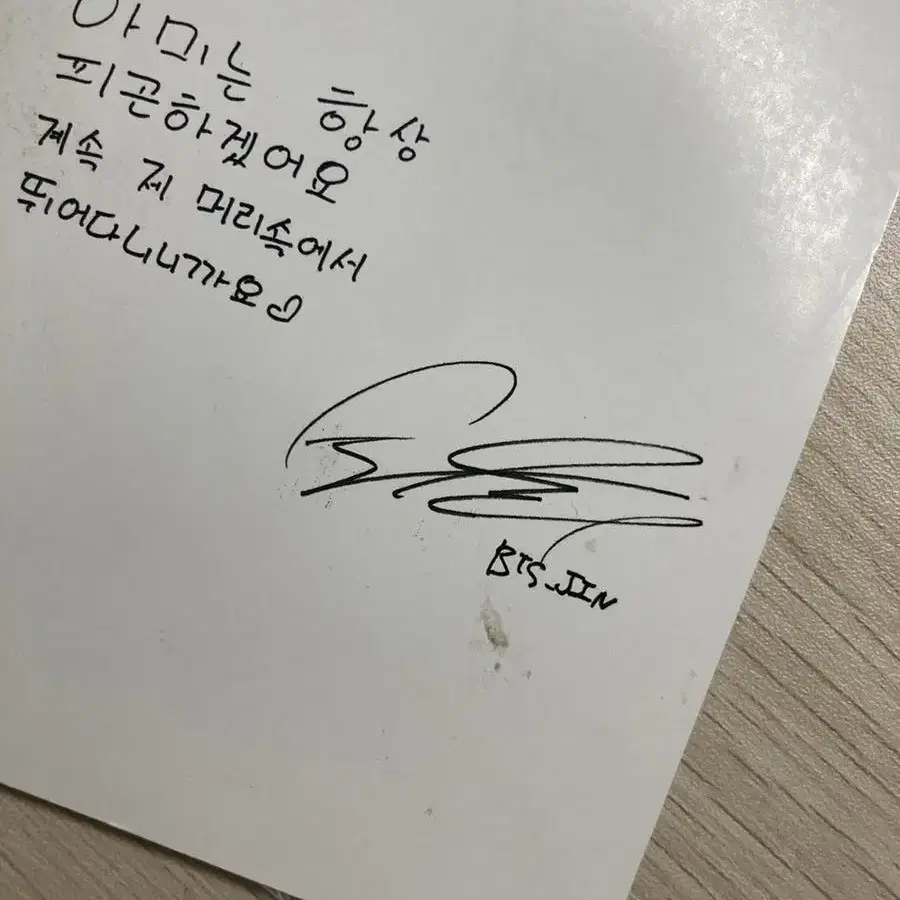 아미는 항상
피곤하겠어요
계속 제 머리속에서
뛰어다니니까요♡
BTS.JIN